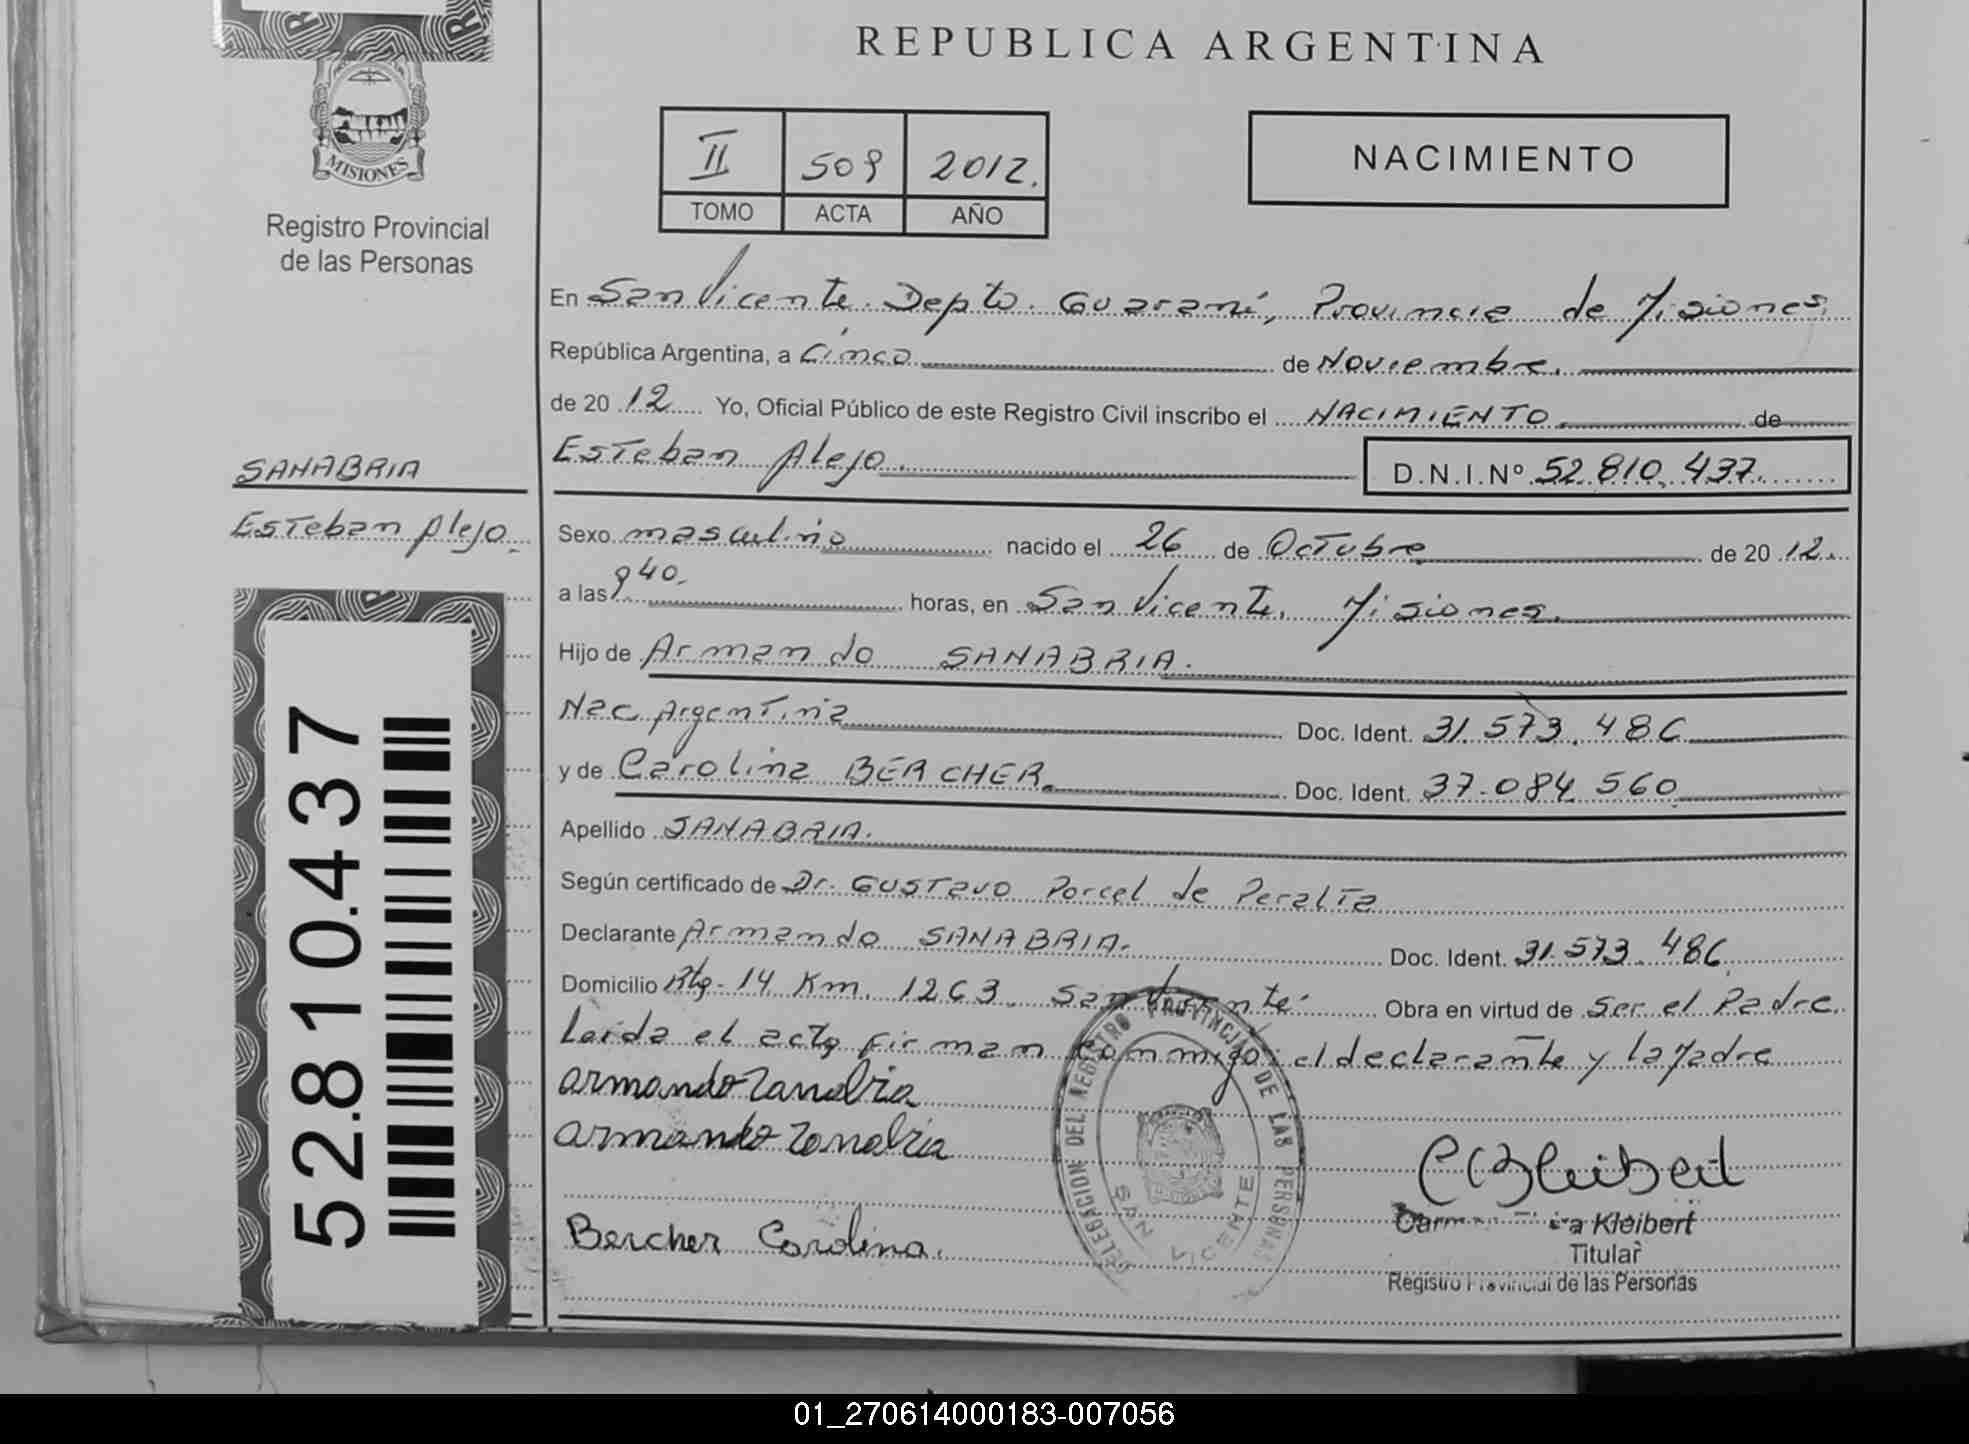 REPUBLICA ARGENTINA
MISIONES
Registro Provincial
de las Personas
II 509 2012.
TOMO ACTA AÑO
NACIMIENTO
En San Vicente. Depto. Guaraní, Provincia de Misiones,
República Argentina, a Cinco de Noviembre.
de 20 12 Yo, Oficial Público de este Registro Civil inscribo el NACIMIENTO de
Esteban Alejo.
D.N.I.Nº 52.810.437
SANABRIA
Esteban Alejo.
Sexo masculino nacido el 26 de Octubre de 20 12.
a las 9 40. horas, en San Vicente. Misiones.
Hijo de Armando SANABRIA.
Nac. Argentina Doc. Ident. 31.573.486
y de Carolina BERCHER. Doc. Ident. 37.084.560
Apellido SANABRIA.
Según certificado de Dr. Gustavo Porcel de Peralta
Declarante Armando SANABRIA. Doc. Ident. 31.573.486
Domicilio Rta. 14 Km. 1263. San Vicente. Obra en virtud de Ser el Padre.
Leida el acta firman conmigo: el declarante y la Madre
armando Zanabria
armando Zanabria
Bercher Carolina.
DELEGACION DEL REGISTRO PROVINCIAL DE LAS PERSONAS
SAN VICENTE
Kleibert
Titular
Registro Provincial de las Personas
52.810.437
01_270614000183-007056